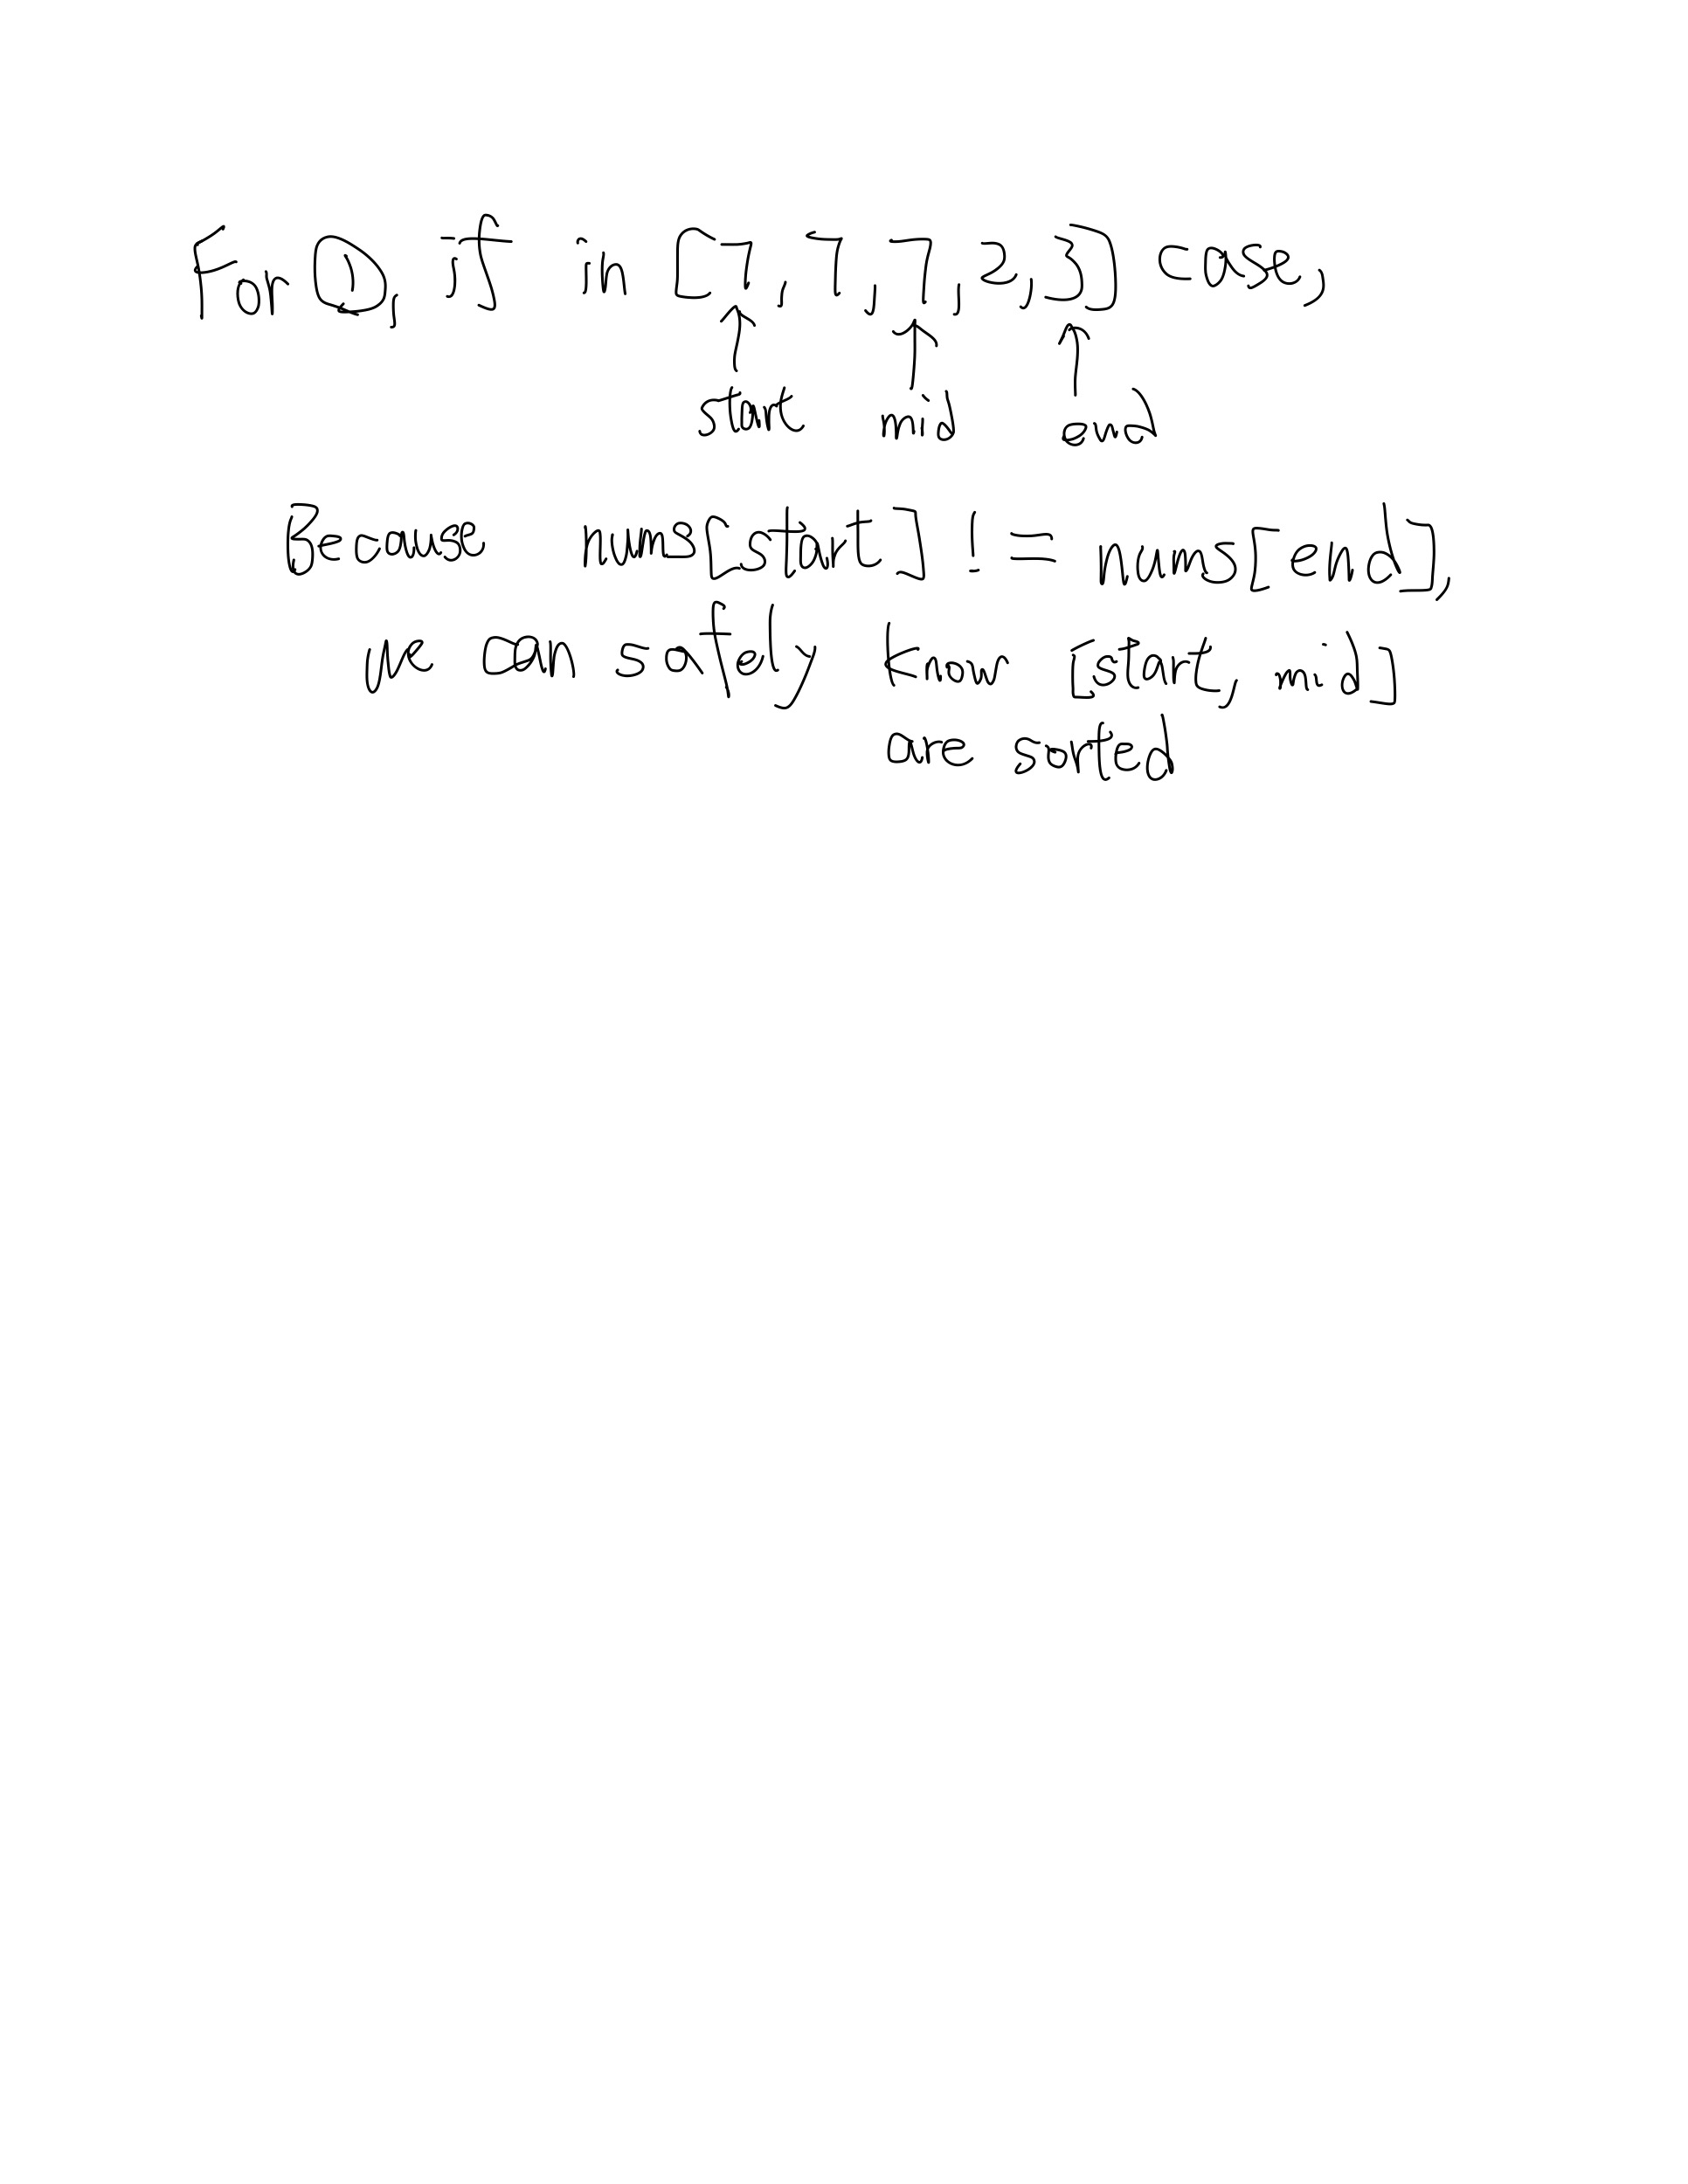 For ①, if in [7, 7, 7, 2, 3] case,
↑ ↑ ↑
start mid end
Because nums[start] != nums[end],
we can safely know [start, mid]
are sorted